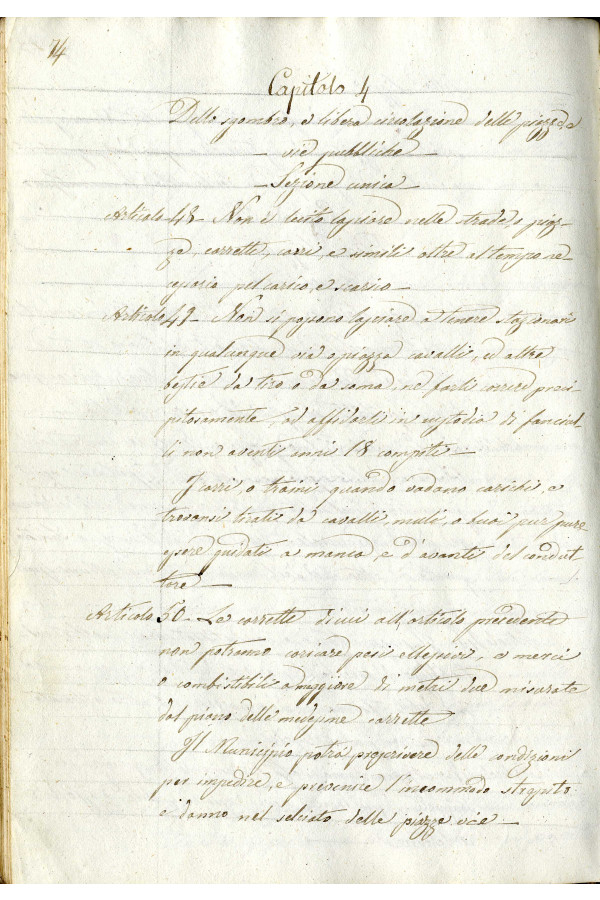 14
Capitolo 4
Dello sgombro, e libera circolazione delle piazze, e
vie pubbliche
Sezione unica
Articolo 48 - Non è lecito lasciare nelle strade, e piaz-
ze, carrette, carri, e simili oltre al tempo ne-
cessario pel carico, e scarico
Articolo 49 - Non si possono lasciare o tenere stazionari
in qualunque via o piazza cavalli, ed altre
bestie da tiro o da soma, ne farli correre preci-
pitosamente, od affidarli in custodia di fanciul-
li non aventi anni 18 compiti
I carri, o traini quando vadano carichi, e
trovansi tirati da cavalli, muli, o buoi pur
essere guidati a manca, e d'avanti del condut-
tore
Articolo 50 - Le carrette di cui all'articolo precedente
non potranno caricare pesi eccessivi, e merci
o combustibili a maggiore di metri due misurate
dal piano delle medesime carrette
Il Municipio potrà prescrivere delle condizioni
per impedire, e prevenire l'incommodo strepito
e danno nel selciato delle piazze vie